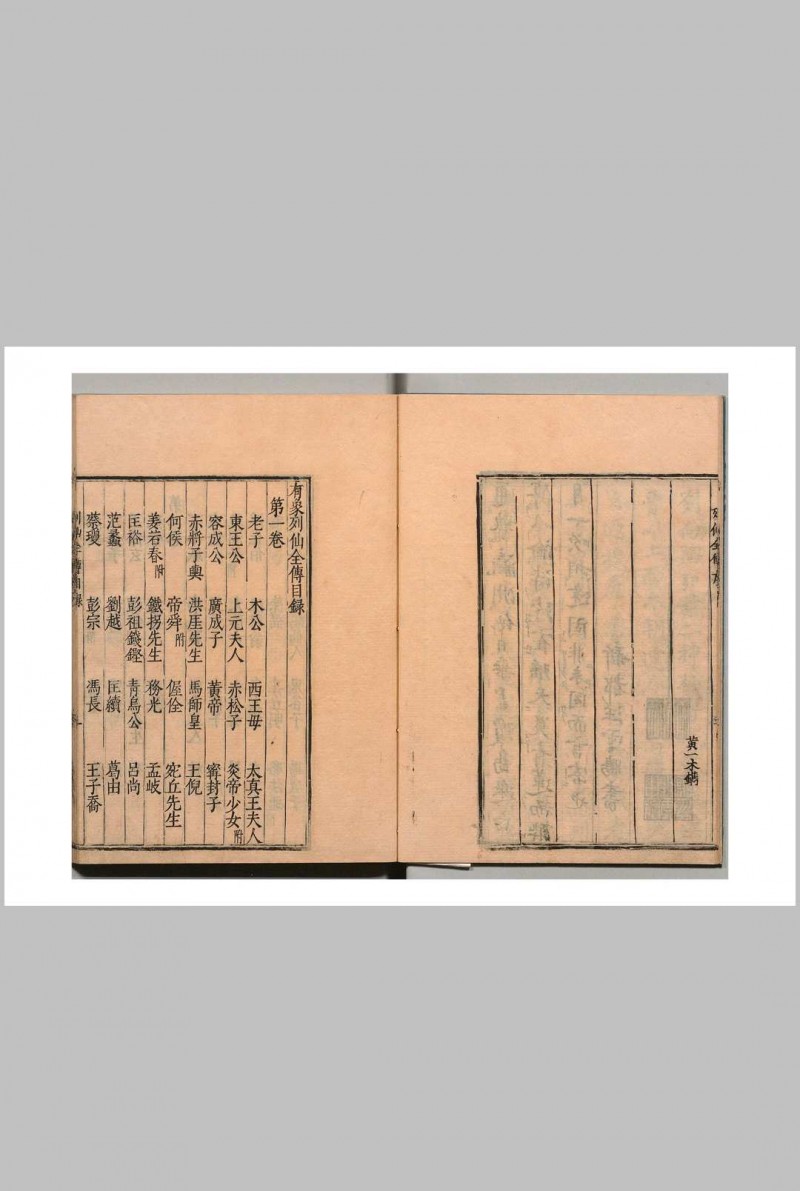 黄一木鐫
有象列仙全傳目錄
第一卷
老子 木公 西王母 太真王夫人
東王公 上元夫人 赤松子 炎帝少女附
容成公 廣成子 黃帝 甯封子
赤將子輿 洪厓先生 馬師皇 王倪
何侯 帝舜附 偓佺 宛丘先生
姜若春附 鐵拐先生 務光 孟岐
匡裕 彭祖籛鏗 青烏公 呂尚
范蠡 劉越 匡續 葛由
蔡瓊 彭宗 馮長 王子喬